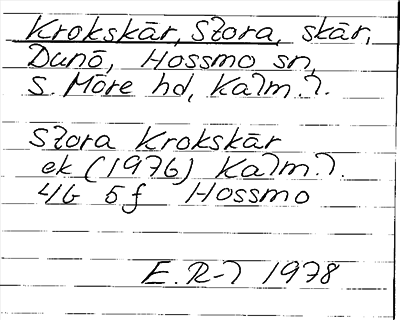 Krokskär, Stora, skär,
Dunö, Hossmo sn,
S. Möre hd, Kalm. l.
Stora Krokskär
ek (1976) Kalm. l.
4G 5f Hossmo
E. R-l 1978